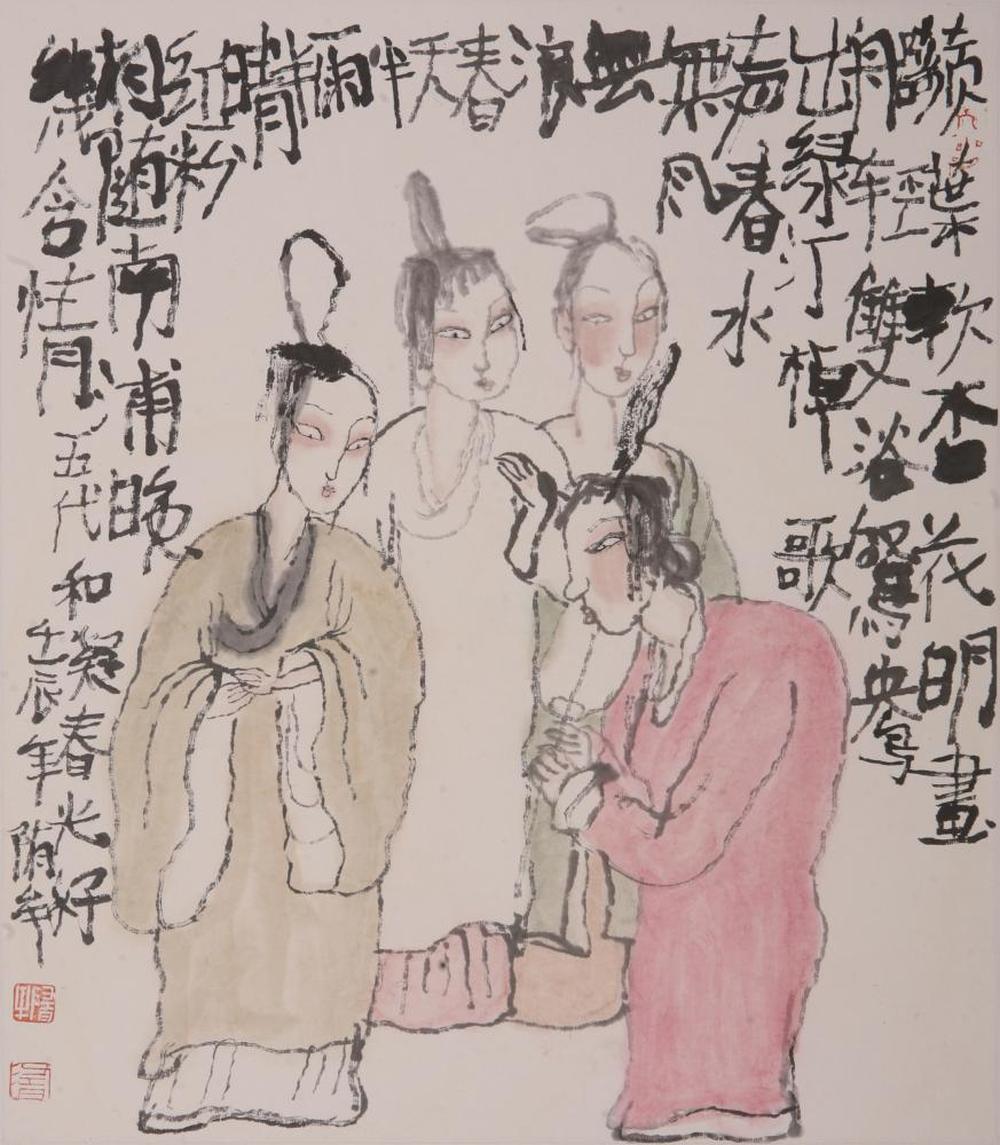 蘋葉軟杏花明畫
船輕雙浴鴛鴦
出綠汀棹歌
聲春水
無風
無
浪
春
天
半
雨
半
晴
紅粉
相隨南浦晚
幾含情
五代
和凝春光好
壬辰年隋牟